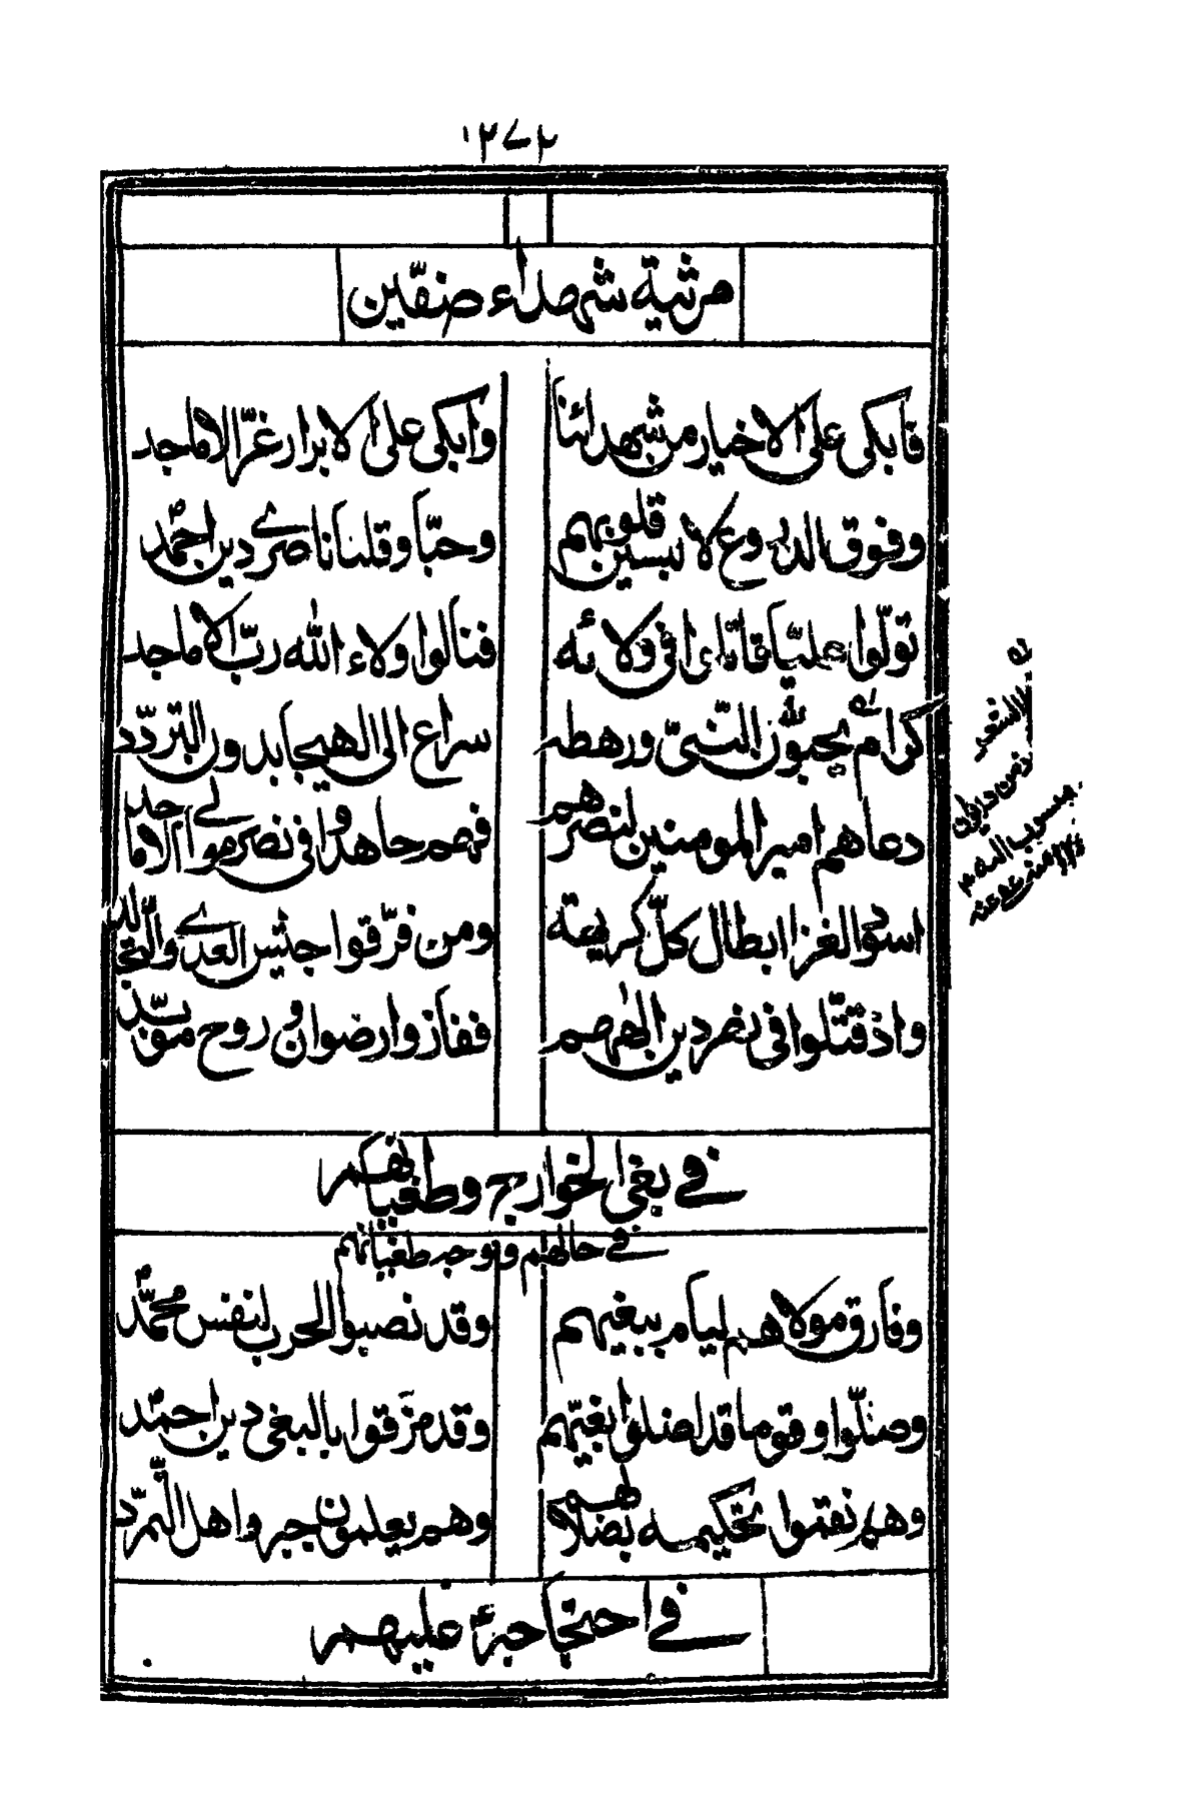 ١٢٧٢
مرثية شهداء صفّين
فابكى على الاخيار من شهدائنا وابكى على الابرار غرّ الاماجد
وفوق الدروع لابسين قلوبهم وحبّا وقلنا ناصرى دين احمد
تولّوا عليّا قائما فى ولائه فنالوا ولاء اللّه ربّ الاماجد
كرام يحبون النّبىّ ورهطه سراع الى الهيجا بدون التردّد
دعاهم امير المومنين لنصرهم فهم جاهدوا فى نصر مولى الاماجد
اسود الغزا ابطال كلّ كريهة ومن فرّقوا جيش العدى
واذ قتّلوا فى نصر دين الههم ففازوا رضوان وروح مؤبّد
فى بغى الخوارج وطغيانهم
فى حالهم ووجه طغيانهم
وفارق مولاهم ليام ببغيهم وقد نصبوا الحرب لنفس محمّد
وضلّوا وقوما قد اضلوا بغيّهم وقد مزقوا بالبغى دين احمد
وهم نقموا تحكيمه بضلالهم وهم يعلمون جبروا هل التمرّد
فى احتجاجه عليهم